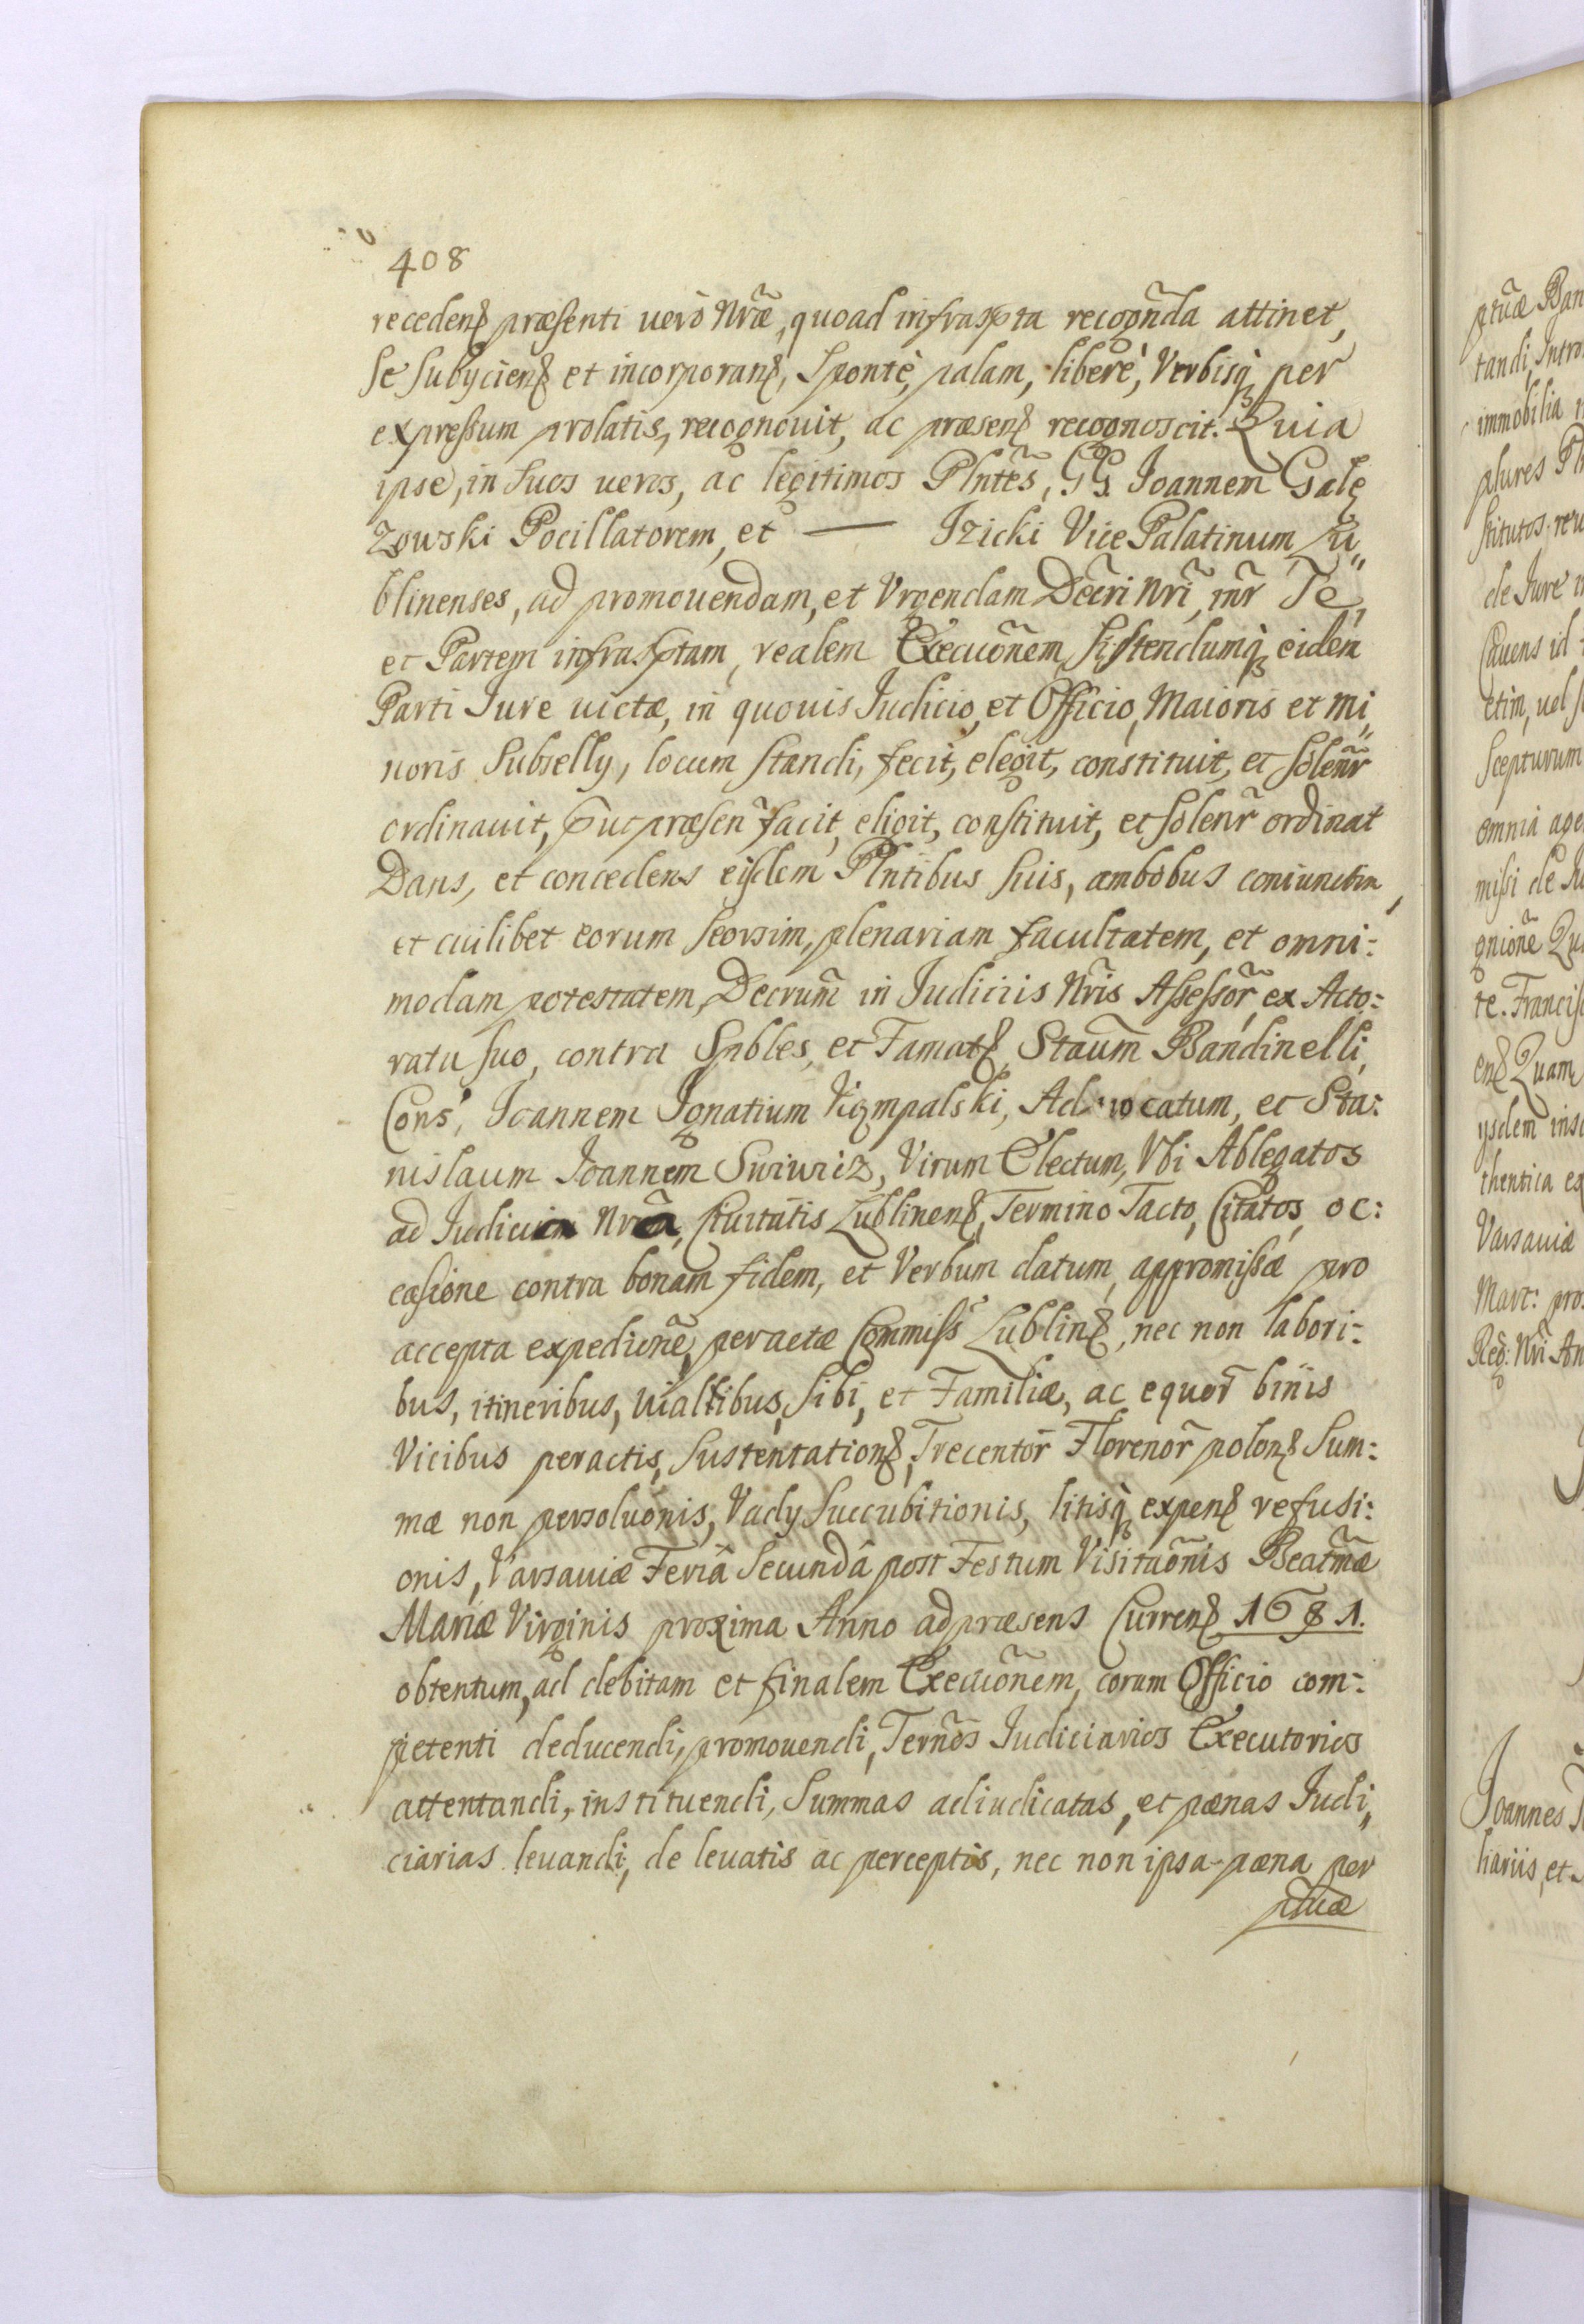 408
recedens præsenti uerò Nr̃æ, quoad infraspta recogñda attinet,
se subyciens et incorporans, sponte, palam, liberè, Verbisq́ per
expressum prolatis, recognouit, ac præsens recognoscit. Quia
ipse, in suos ueros, ac legitimos Plñtes, GG. Joannem Galę
zowski Pocillatorem, et — Izicki Vice Palatinum Lu„
blinenses, ad promouendam, et Vrgendam Decr̃i Nr̃i, inr̃ Te,
et Partem infrasptam, realem Execuõnem, sistendumq́ eidem
Parti Jure uictæ, in quouis Judicio, et Officio, Maioris et Mi„
noris Subselly, locum standi, fecit, elegit, constituit, et solenr̃
ordinauit, p̃ut præsen̄ facit, eligit, constituit, et solenr̃ ordinat
Dans, et concedens eisdem Plñtibus suis, ambobus coniunctim,
et cuilibet eorum seorsim, plenariam facultatem, et omni:
modam potestatem, Decrum̃ in Judiciis Nr̃is Assessor̃, ex Acto:
ratu suo, contra Spbles, et Famats, Staum̃ Bandinelli,
Cons', Joannem Ignatium Kiąmpalski, Aduocatum, et Sta:
nislaum Joannem Swiwicz, Virum Electum, Vti Ablegatos
ad Judicium Nr̃a, Ciuitatis Lublinens, Termino Tacto, Citatos, oc:
casione contra bonam fidem, et Verbum datum, appromissæ pro
accepta expedicnẽ, peractæ Commiss Lublins, nec non labori:
bus, itineribus, uialtibus, sibi, et Familiæ, ac equor̃ binis
Vicibus peractis, Sustentations, Trecentor̃ Florenor̃ polons Sum:
mæ non persoluõnis, Vady Succubitionis, litisq́ expens refusi:
onis, Varsauiæ Feriâ Secundâ post Festum Visituõnis Beatm̃æ
Mariæ Virginis proxima Anno ad præsens Currens 1681.
obtentum, ad debitam et finalem Execuõnem, coram Officio com:
petenti deducendi, promouendi, Ternõs Judiciarios Executorios
attentandi, instituendi, Summas adiudicatas, et pænas Judi„
ciarias leuandi, de leuatis ac perceptis, nec non ipsa pæna per
ptuæ